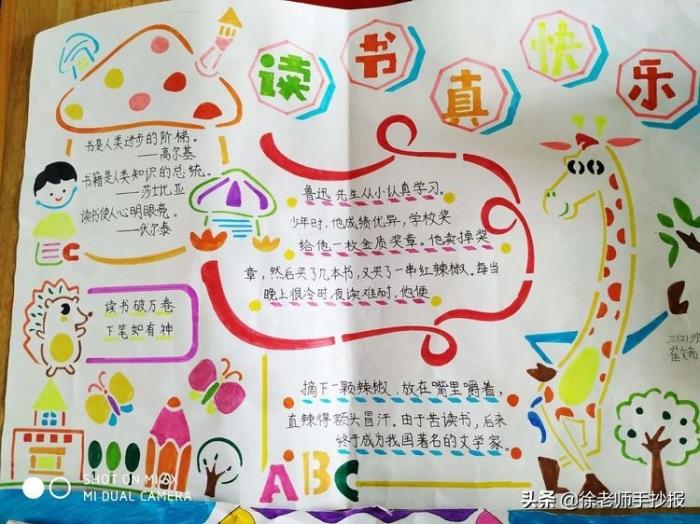 读书真快乐
书是人类进步的阶梯。
——高尔基
书籍是人类知识的总统。
——莎士比亚
读书使人心明眼亮。
——伏尔泰
BC
读书破万卷
下笔如有神
鲁迅先生从小认真学习。
少年时,他成绩优异,学校奖
给他一枚金质奖章。他卖掉奖
章,然后买了几本书,又买了一串红辣椒。每当
晚上很冷时,夜读难耐,他便
摘下一颗辣椒,放在嘴里嚼着,
直辣得额头冒汗。由于苦读书,后来
终于成为我国著名的文学家。
ABC
二(2)班
SHOT ON MI 2X
MI DUAL CAMERA
头条 @徐老师手抄报